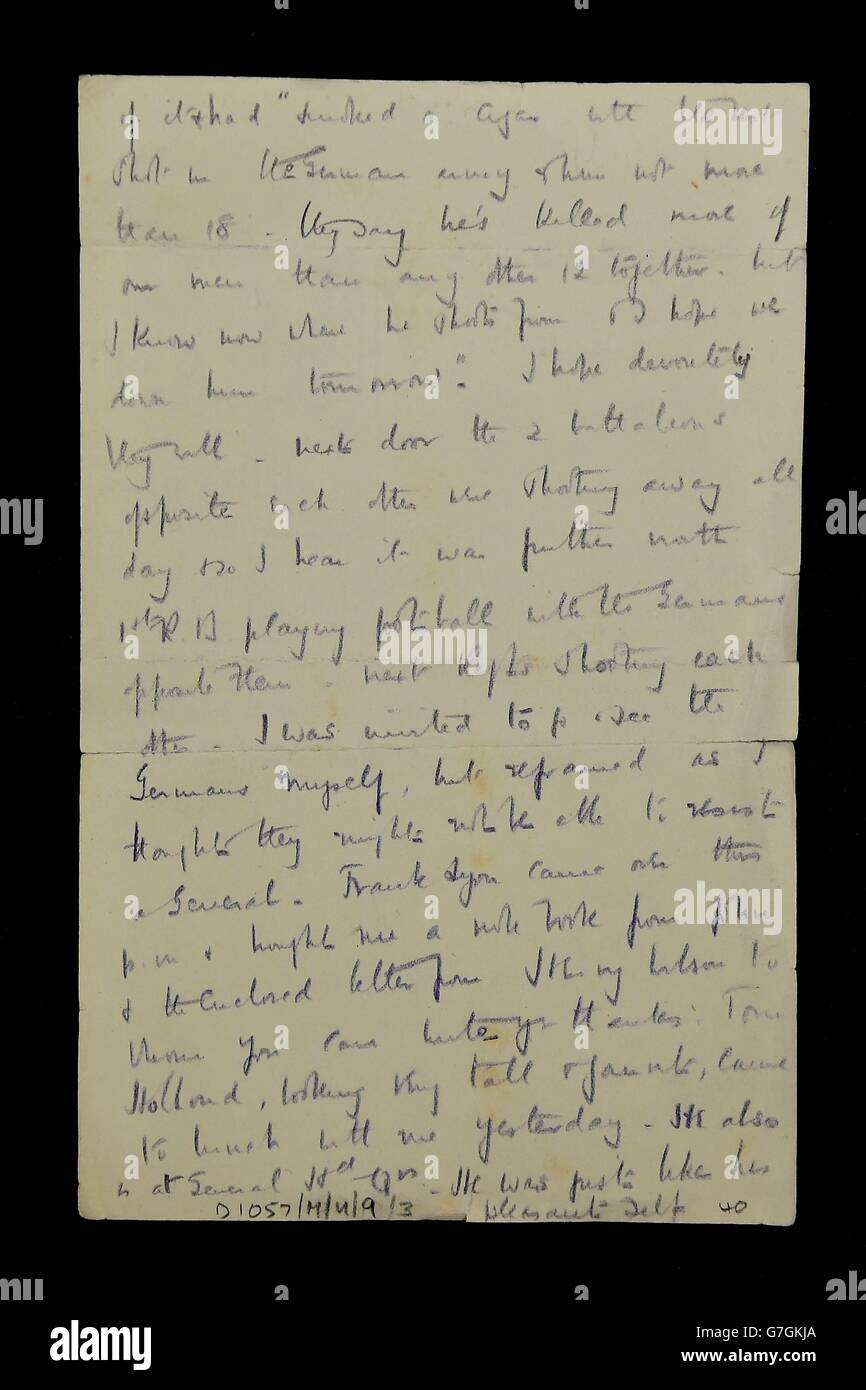 of it & had "smoked a cigar with the best
shot in the German army & then not more
than 18 - They say he's killed more of
our men than any other 12 together. but
I know now where he shoots from & I hope we
down him tomorrow". I hope devoutedly
they will - next door the 2 battalions
opposite each other were shooting away all
day & so I hear it was further north
1st R B playing football with the Germans
opposite them - next Regts shooting each
other - I was invited to go & see the
Germans myself, but refrained as I
thought they might not be able to resist
a General - Frank Lyon came over this
p.m & brought me a note book from John
& the enclosed letter from to
whom you can write yr thanks. Tom
Hollond, looking very tall & gaunt, came
to lunch with me yesterday - He also
is at General Hd-Qrs - He was just like his
pleasant self
D1057/M/U/9/3
40
alamy
a
alamy
Image ID: G7GKJA
www.alamy.com